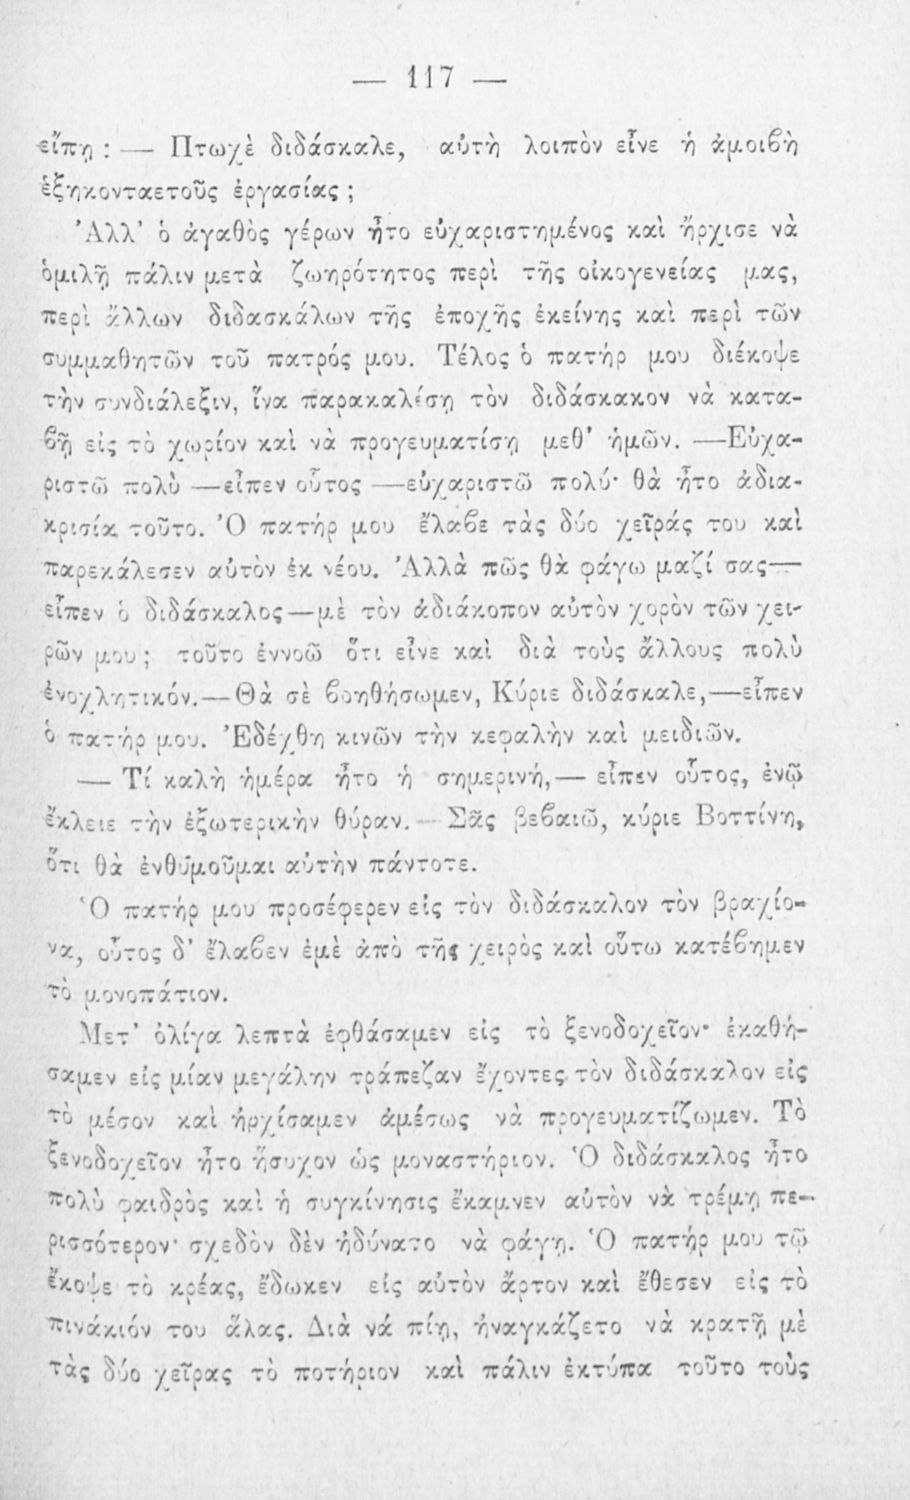 — 117 —
εἴπῃ : — Πτωχὲ διδάσκαλε, αὐτὴ λοιπὸν εἶνε ἡ ἀμοιβὴ
ἑξηκονταετοῦς ἐργασίας ;
Ἀλλ’ ὁ ἀγαθὸς γέρων ἦτο εὐχαριστημένος καὶ ἤρχισε νὰ
ὁμιλῇ πάλιν μετὰ ζωηρότητος περὶ τῆς οἰκογενείας μας,
περὶ ἄλλων διδασκάλων τῆς ἐποχῆς ἐκείνης καὶ περὶ τῶν
συμμαθητῶν τοῦ πατρός μου. Τέλος ὁ πατήρ μου διέκοψε
τὴν συνδιάλεξιν, ἵνα παρακαλέσῃ τὸν διδάσκακον νὰ κατα-
βῇ εἰς τὸ χωρίον καὶ νὰ προγευματίσῃ μεθ’ ἡμῶν. —Εὐχα-
ριστῶ πολὺ —εἶπεν οὗτος —εὐχαριστῶ πολύ· θὰ ἦτο ἀδια-
κρισία τοῦτο. Ὁ πατήρ μου ἔλαβε τὰς δύο χεῖράς του καὶ
παρεκάλεσεν αὐτὸν ἐκ νέου. Ἀλλὰ πῶς θὰ φάγω μαζί σας—
εἶπεν ὁ διδάσκαλος—μὲ τὸν ἀδιάκοπον αὐτὸν χορὸν τῶν χει-
ρῶν μου ; τοῦτο ἐννοῶ ὅτι εἶνε καὶ διὰ τοὺς ἄλλους πολὺ
ἐνοχλητικόν.—Θὰ σὲ βοηθήσωμεν, Κύριε διδάσκαλε,—εἶπεν
ὁ πατήρ μου. Ἐδέχθη κινῶν τὴν κεφαλὴν καὶ μειδιῶν.
— Τί καλὴ ἡμέρα ἦτο ἡ σημερινή,— εἶπεν οὗτος, ἐνῷ
ἔκλειε τὴν ἐξωτερικὴν θύραν. — Σᾶς βεβαιῶ, κύριε Βοττίνη,
ὅτι θὰ ἐνθυμοῦμαι αὐτὴν πάντοτε.
Ὁ πατήρ μου προσέφερεν εἰς τὸν διδάσκαλον τὸν βραχίο-
να, οὗτος δ’ ἔλαβεν ἐμὲ ἀπὸ τῆς χειρὸς καὶ οὕτω κατέβημεν
τὸ μονοπάτιον.
Μετ’ ὀλίγα λεπτὰ ἐφθάσαμεν εἰς τὸ ξενοδοχεῖον· ἐκαθή-
σαμεν εἰς μίαν μεγάλην τράπεζαν ἔχοντες τὸν διδάσκαλον εἰς
τὸ μέσον καὶ ἠρχίσαμεν ἀμέσως νὰ προγευματίζωμεν. Τὸ
ξενοδοχεῖον ἦτο ἥσυχον ὡς μοναστήριον. Ὁ διδάσκαλος ἦτο
πολὺ φαιδρὸς καὶ ἡ συγκίνησις ἔκαμνεν αὐτὸν νὰ τρέμῃ πε-
ρισσότερον· σχεδὸν δὲν ἠδύνατο νὰ φάγῃ. Ὁ πατήρ μου τῷ
ἔκοψε τὸ κρέας, ἔδωκεν εἰς αὐτὸν ἄρτον καὶ ἔθεσεν εἰς τὸ
πινάκιόν του ἅλας. Διὰ νά πίῃ, ἠναγκάζετο νὰ κρατῇ μὲ
τὰς δύο χεῖρας τὸ ποτήριον καὶ πάλιν ἐκτύπα τοῦτο τοὺς